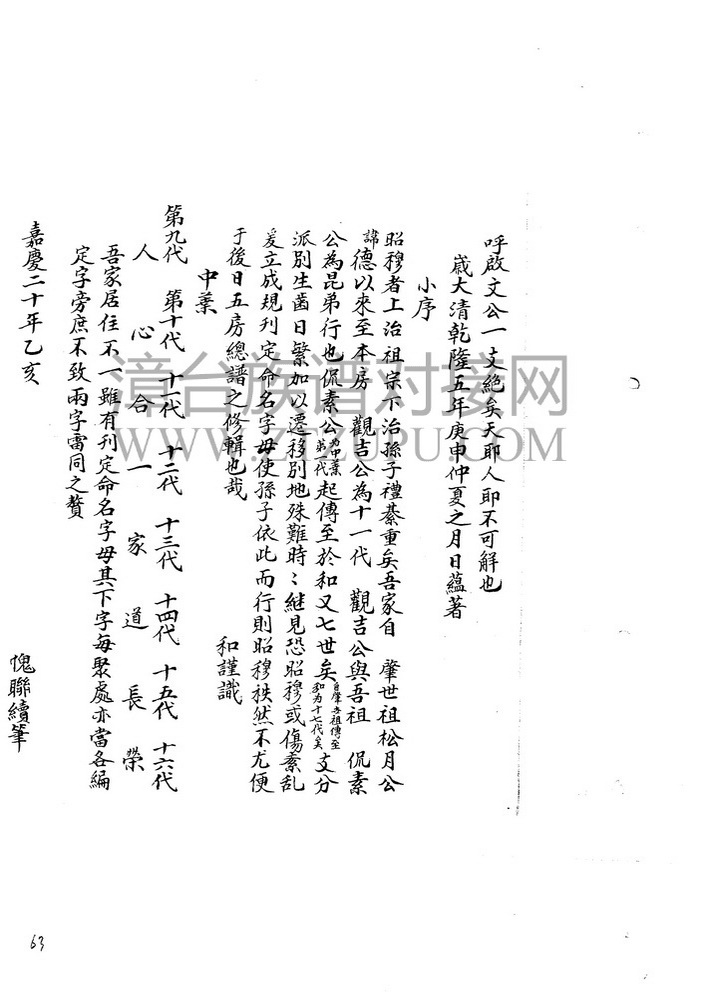 呼啟文公一支絕矣天耶人耶不可解也
歲大清乾隆五年庚申仲夏之月日蘊著
小序
昭穆者上治祖宗下治孫子禮綦重矣吾家自 肇世祖松月公
諱德以來至本房 觀吉公為十一代 觀吉公與吾祖 侃素
公為昆弟行也侃素公為中葉第一代起傳至於和又七世矣自肇世祖傳至和为十七代矣支分
派別生齒日繁加以遷移別地殊難時〻継見恐昭穆或傷紊乱
爰立成規刊定命名字毋使孫子依此而行則昭穆秩然不尤便
于後日五房總譜之修輯也哉
和謹識
中葉
第九代 第十代 十一代 十二代 十三代 十四代 十五代 十六代
人 心 合 一 家 道 長 榮
吾家居住不一雖有刊定命名字毋其下字每聚處亦當各編
定字旁庶不致兩字雷同之贅
嘉慶二十年乙亥
愧聯續筆
63
漳台族谱对接网
WWW.ZTZUPU.COM